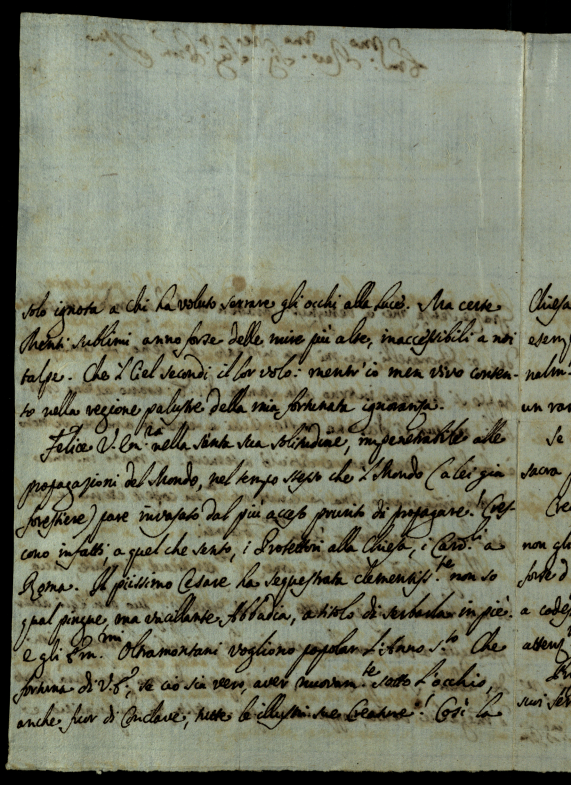 solo ignota a chi ha voluto serrare gli occhi alla luce. Ma certe
Menti sublimi anno forse delle mire più alte, inaccessibili a noi
talpe. Che 'l Ciel secondi il lor volo: mentr' io men vivo conten-
to nella regione palustre della mia fortunata ignoranza.
Felice V. Em.za nella santa sua solitudine, impenetrabile alle
propagazioni del Mondo, nel tempo stesso che 'l Mondo (a lei già
forestiere) pare invasato dal più acceso prurito di propagare! Cres-
cono infatti, a quel che sento, i Protettori alla Chiesa, i Card.li a
Roma. Il piissimo Cesare ha sequestrata clementiss.te non so
qual pingue, ma vacillante Abbadia, a titolo di serbarla in piè.
e gli Em.mi Oltramontani vogliono popolar l'Anno S.to Che
fortuna di V. E., se ciò sia vero, aver nuovam.te sotto l'occhio,
anche fuor di Conclave, tutte le illustri sue Creature! Così la
Chiesa
nalm.
un
Se
sacra
Cre
non gli
forse d
a codes
suoi ser